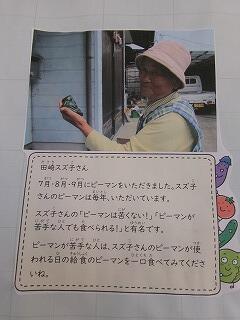 田崎スズ子さん
7月・8月・9月にピーマンをいただきました。スズ子
さんのピーマンは毎年、いただいています。
スズ子さんの「ピーマンは苦くない！」「ピーマンが
苦手な人でも食べられる！」と有名です。
ピーマンが苦手な人は、スズ子さんのピーマンが使
われる日の給食のピーマンを一口食べてみてくださ
いね。